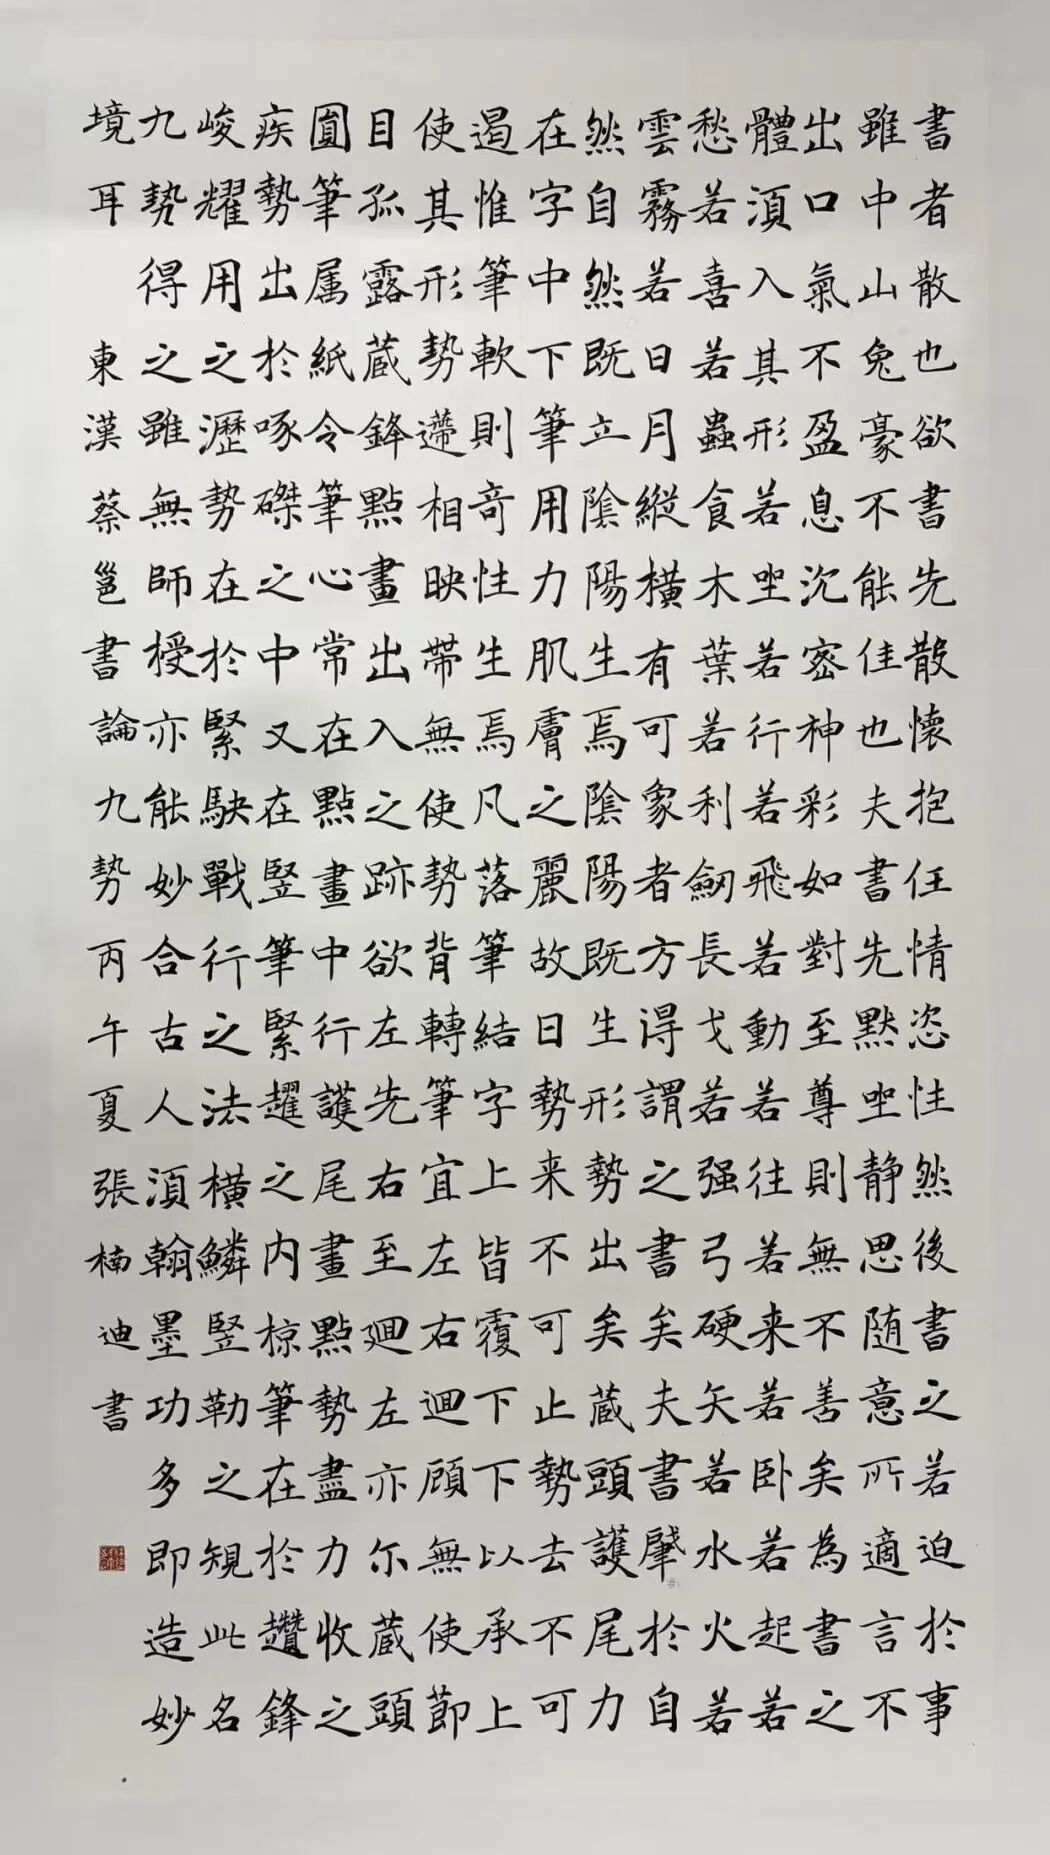 書者散也欲書先散懷抱任情恣性然後書之若迫於事
雖中山兔豪不能佳也夫書先默坐静思随意所適言不
出口氣不盈息沉密神彩如對至尊則無不善矣為書之
體湏入其形若坐若行若飛若動若往若来若卧若起若
愁若喜若蟲食木葉若利劒長戈若强弓硬矢若水火若
雲霧若日月縱橫有可象者方得謂之書矣夫書肇於自
然自然既立陰陽生焉陰陽既生形勢出矣蔵頭護尾力
在字中下筆用力肌膚之麗故曰勢来不可止勢去不可
遏惟筆軟則竒性生焉凡落筆結字上皆覆下下以承上
使其形勢遰相映帶無使勢背轉筆宜左右迴顧無使莭
目孤露蔵鋒點畫出入之跡欲左先右至廻左亦尔蔵頭
圎筆属紙令筆心常在點畫中行護尾畫點勢盡力收之
疾勢出於啄磔之中又在竪筆緊趯之内掠筆在於趲鋒
峻耀用之瀝勢在於緊駃戰行之法橫鱗竪勒之規此名
九勢得之雖無師授亦能妙合古人湏翰墨功多即造妙
境耳 東漢蔡邕書論九勢丙午夏張楠迪書